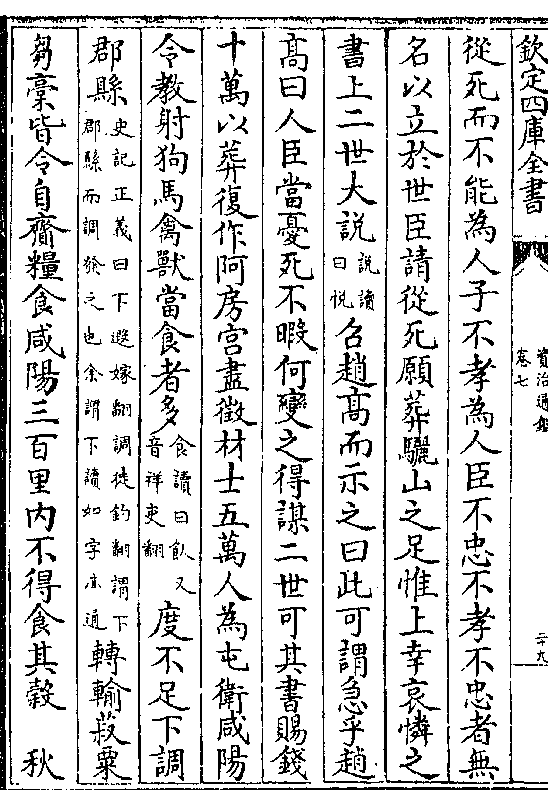 欽定四庫全書
資治通鑑
卷七
二十九
從死而不能為人子不孝為人臣不忠不孝不忠者無
名以立於世臣請從死願葬驪山之足惟上幸哀憐之
書上二世大説説讀曰悦召趙髙而示之曰此可謂急乎趙
髙曰人臣當憂死不暇何變之得謀二世可其書賜錢
十萬以葬復作阿房宫盡徵材士五萬人為屯衛咸陽
令教射狗馬禽獸當食者多食讀曰飤又音祥吏翻度不足下調
郡縣史記正義曰下遐嫁翻調徒釣翻謂下郡縣而調發之也余謂下讀如字亦通轉輸菽粟
芻稾皆令自齎糧食咸陽三百里内不得食其穀 秋